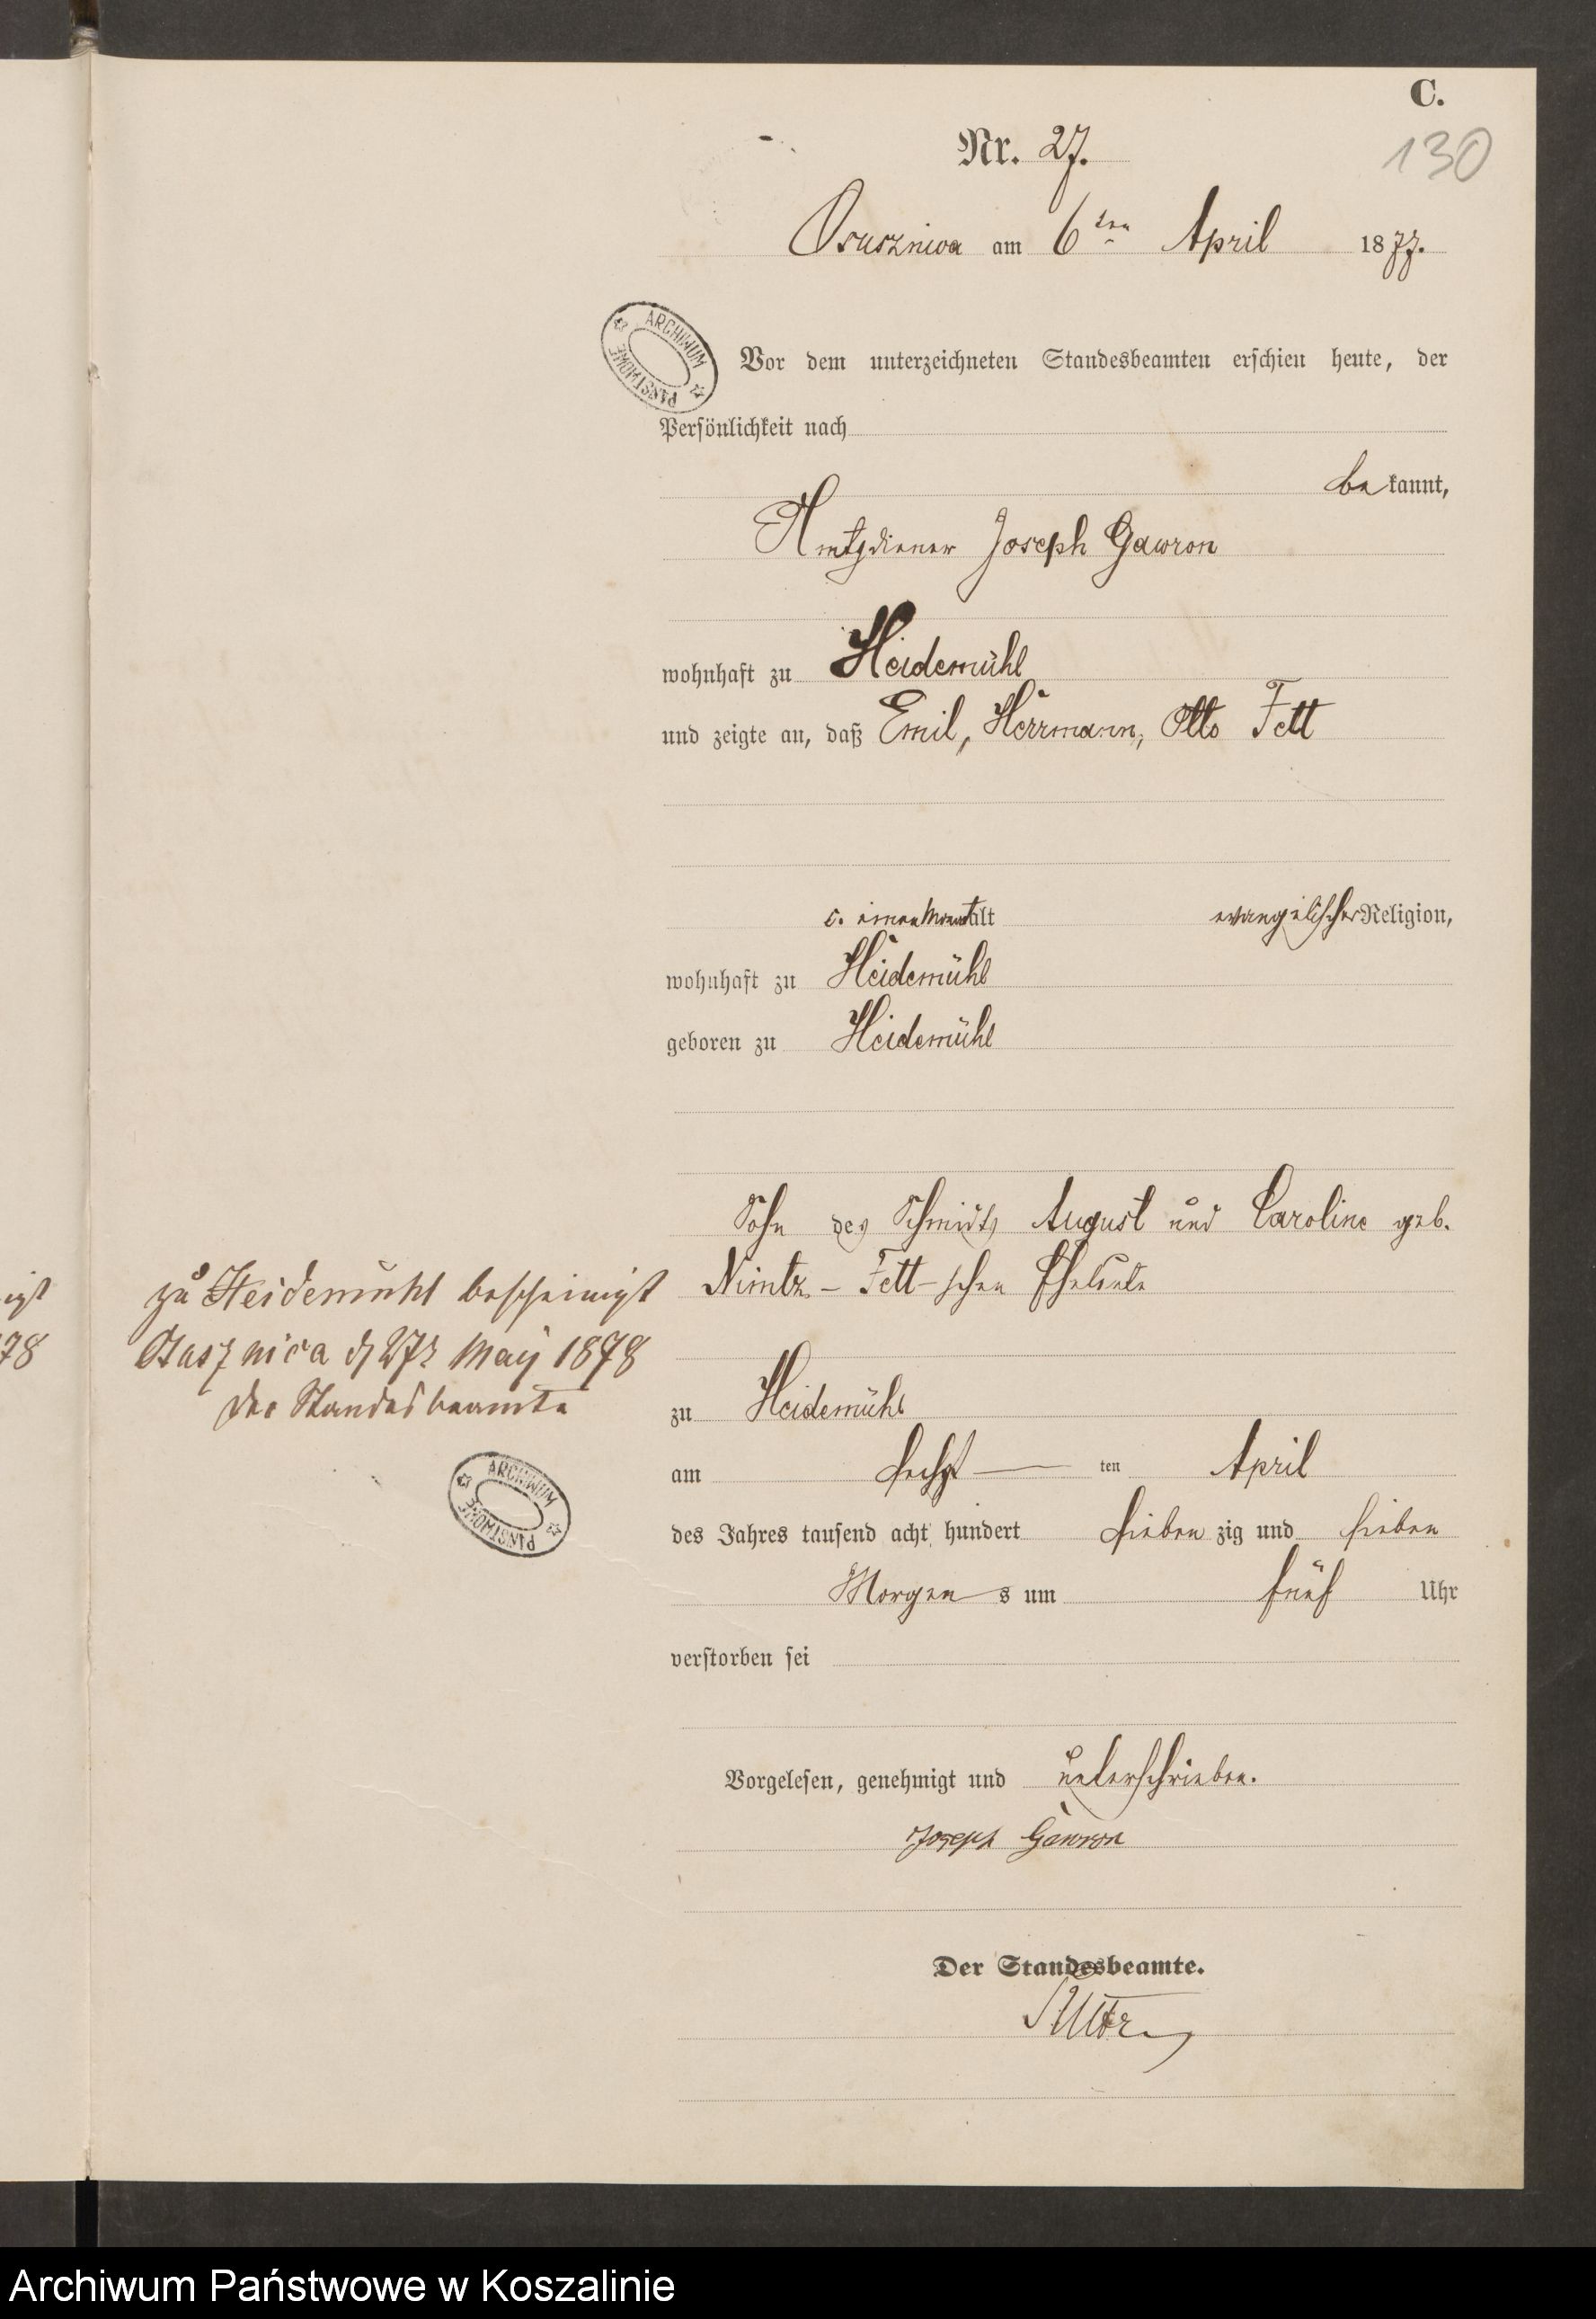 C.
130
Nr. 27.
Osuszniwa am 6ten April 1877.
ARCHIWUM PAŃSTWOWE
Vor dem unterzeichneten Standesbeamten erschien heute, der
Persönlichkeit nach
be kannt,
Amtsdiener Joseph Gawron
wohnhaft zu Heidemühl
und zeigte an, daß Emil, Herrmann, Otto Fett
c. einen Monat alt evangelischer Religion,
wohnhaft zu Heidemühl
geboren zu Heidemühl
Sohn des Schmidts August und Caroline geb.
Nimtz - Fett-schen Eheleute
zu Heidemühl bescheinigt
27t May 1878
Der Standesbeamte
igt
78
zu Heidemühl
am sechst ten April
des Jahres tausend acht hundert sieben zig und sieben
Morgen s um fünf Uhr
verstorben sei
ARCHIWUM PAŃSTWOWE
Vorgelesen, genehmigt und unterschrieben.
Joseph Gawron
Der Standesbeamte.
Archiwum Państwowe w Koszalinie